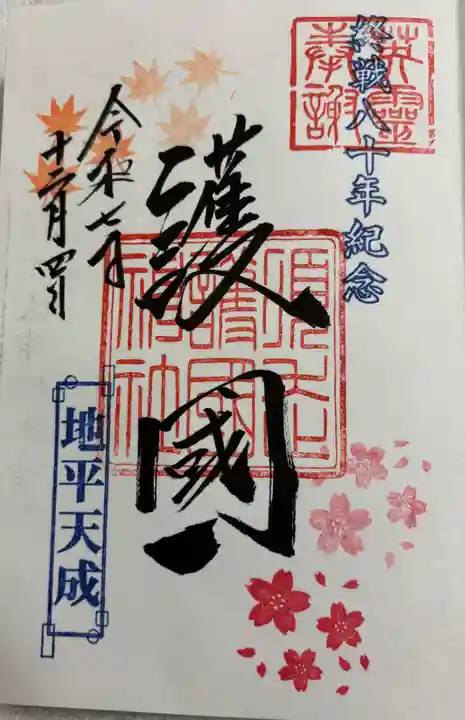 英靈
奉謝
終戦八十年紀念
護國
護國
神社
令和七年
十二月四日
地平天成